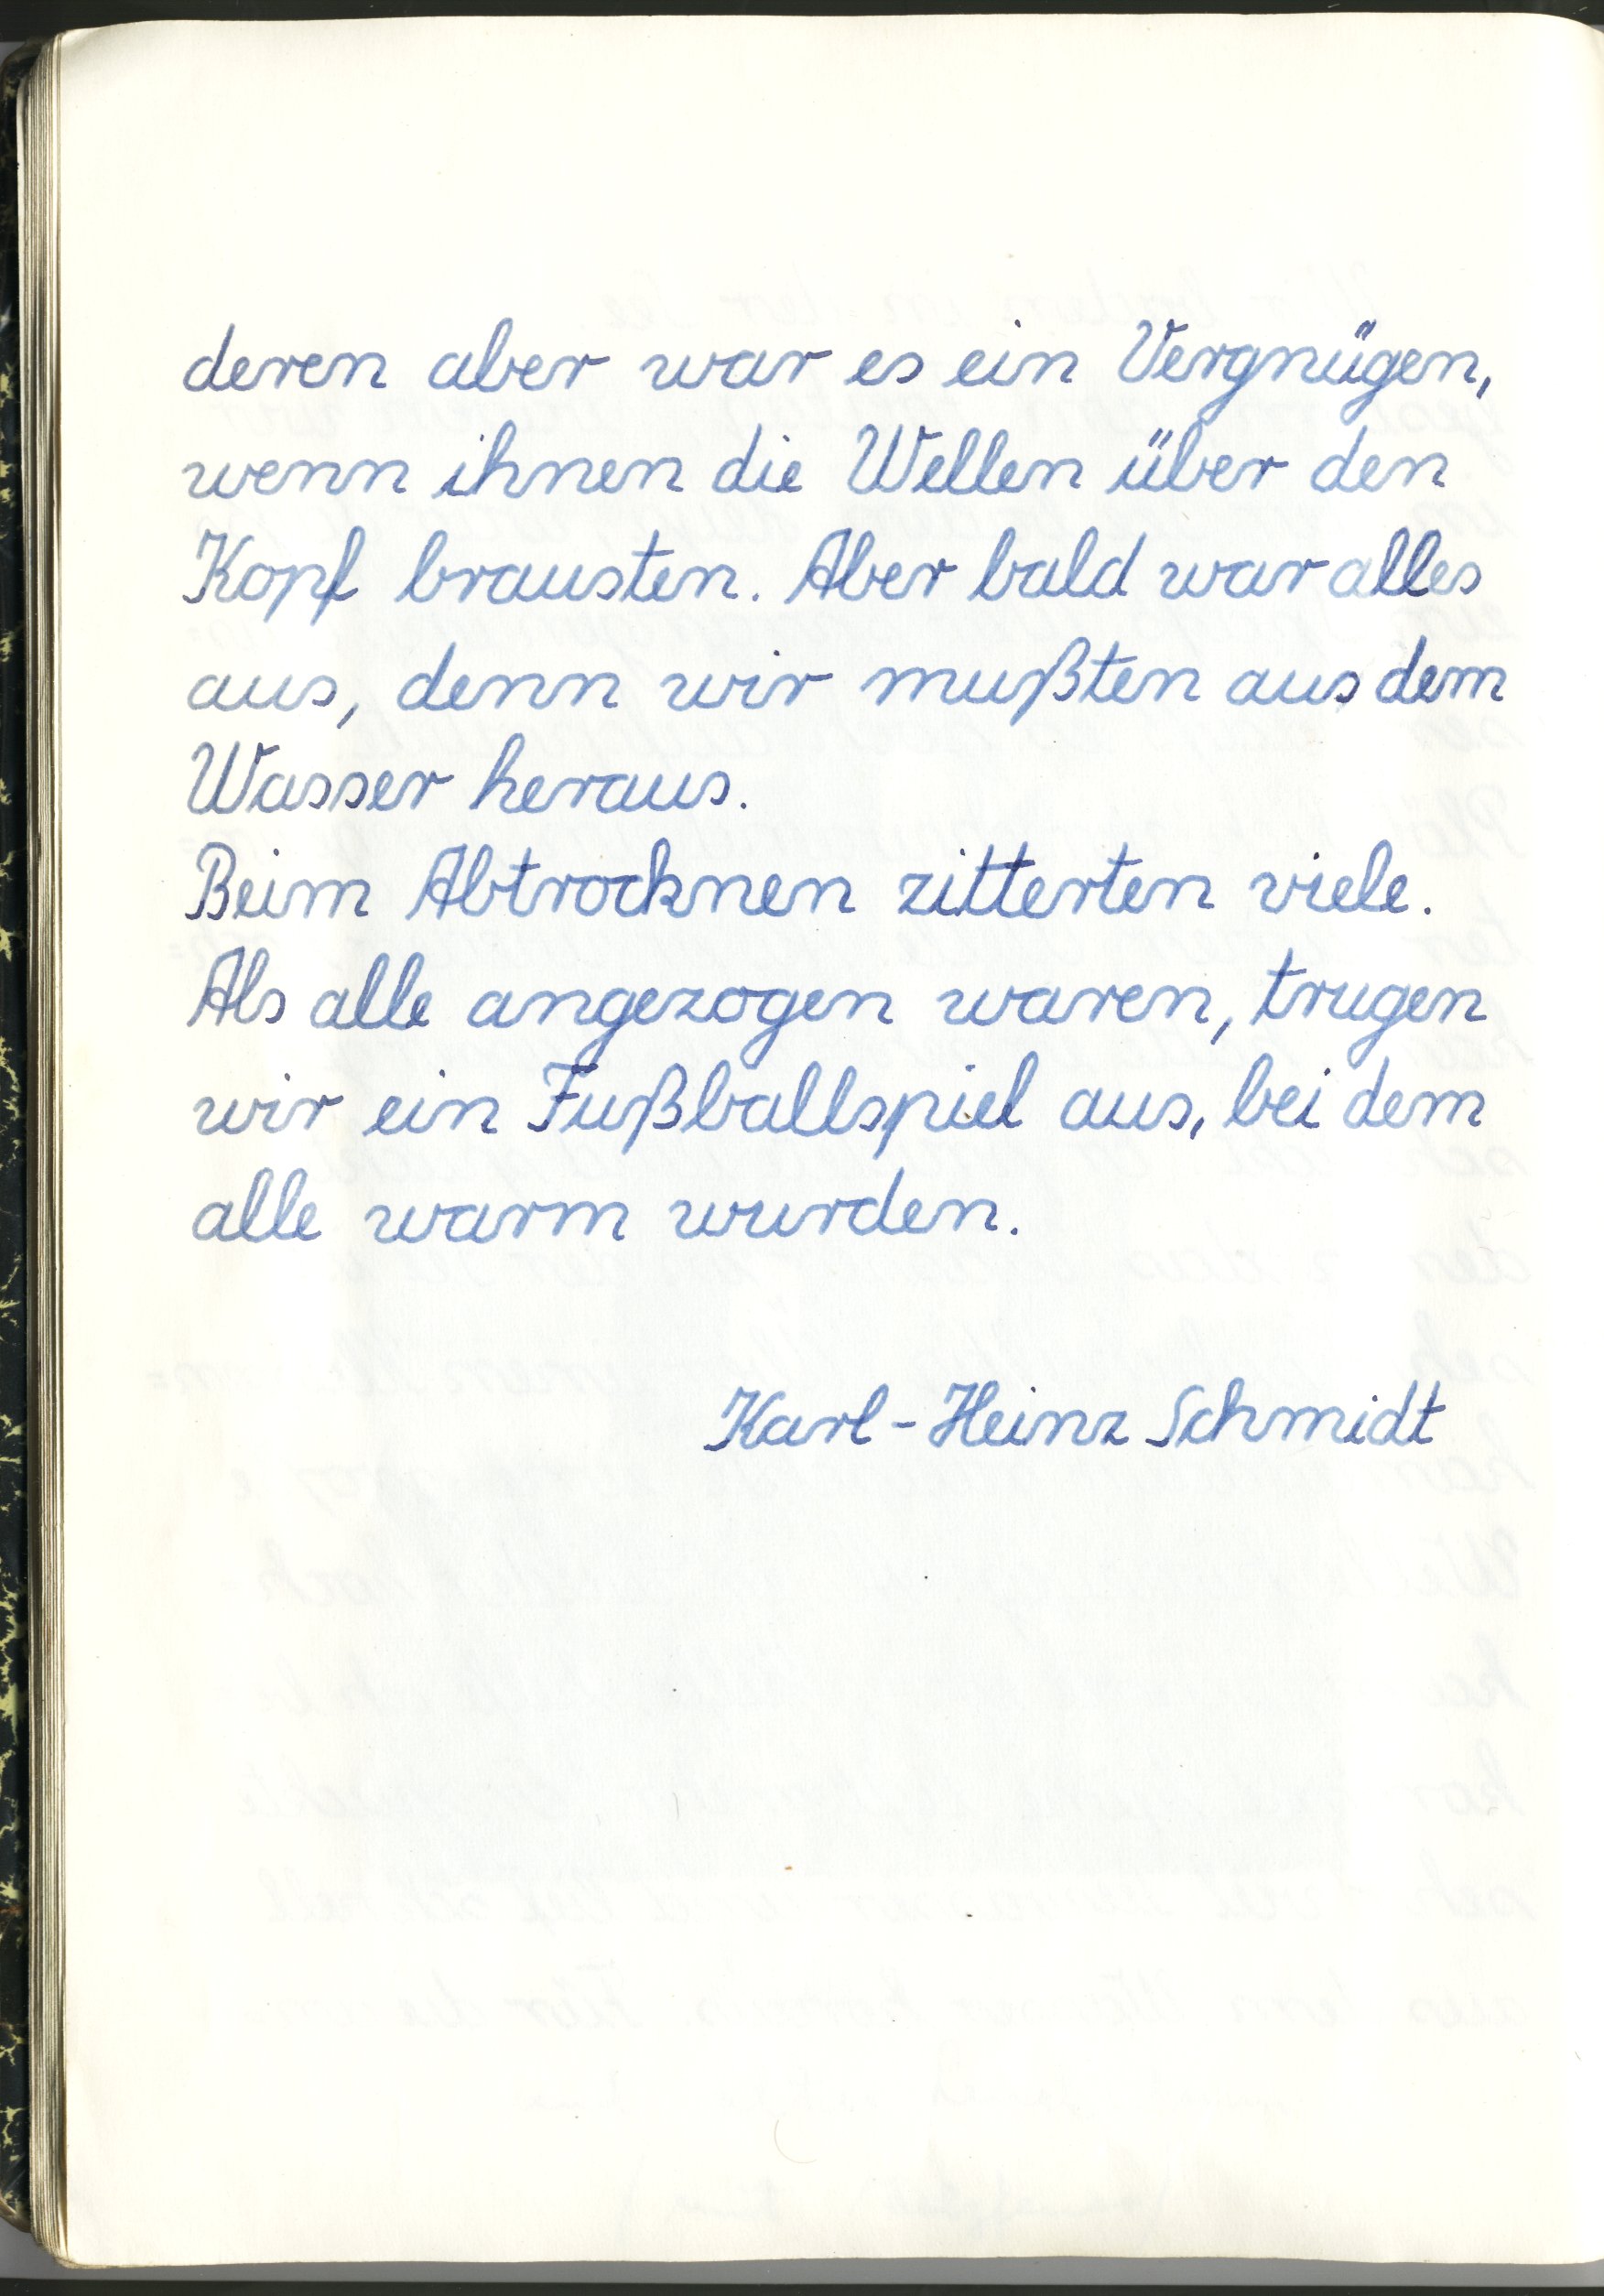 deren aber war es ein Vergnügen,
wenn ihnen die Wellen über den
Kopf brausten. Aber bald war alles
aus, denn wir mußten aus dem
Wasser heraus.
Beim Abtrocknen zitterten viele.
Als alle angezogen waren, trugen
wir ein Fußballspiel aus, bei dem
alle warm wurden.
Karl-Heinz Schmidt